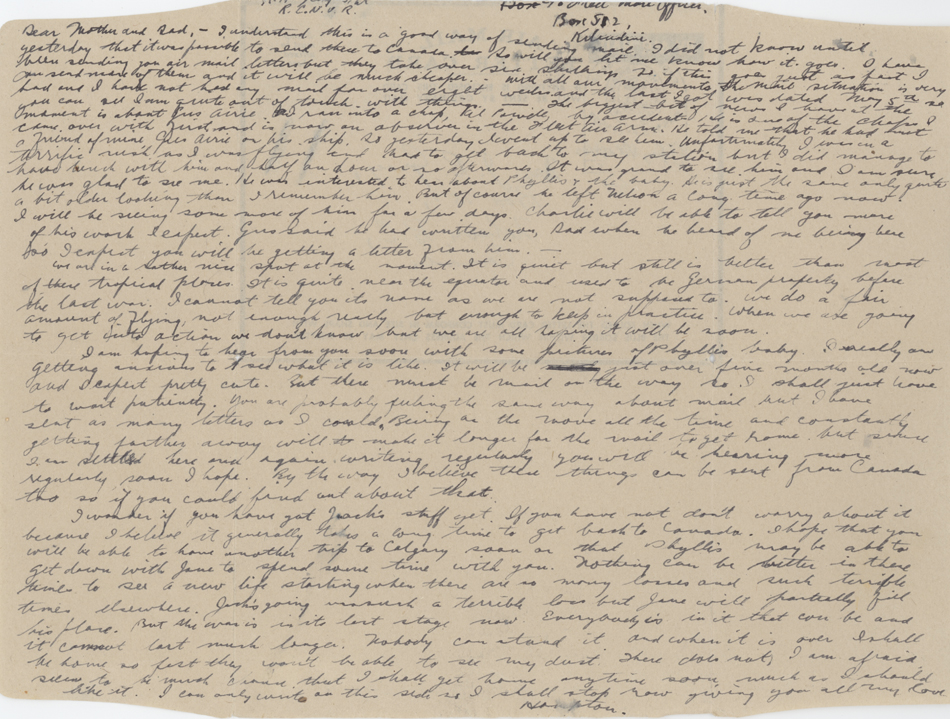 R.C.N.V.R.
Box 582,
Kilindini.
Dear Mother and Dad, - I understand this is a good way of sending mail. I did not know until
yesterday that it was possible to send these to Canada. So will you let me know how it goes. I have
been sending you air mail letters but they take over six shillings so if this goes just as fast I
can send more of them and it will be much cheaper. - The mail situation is very
bad and I have not had any mail for over eight weeks and the last I got was dated Nov 5th so
you can see I am quite out of touch with things. - The biggest bit of news I have at the
moment is about Gus Airie. I ran into a chap, by accident. He is one of the chaps I
came over with first and is now an observer in the Fleet Air Arm. He told me that he had met
a friend of mine Gus Airie on his ship. So yesterday I went up to see him. Unfortunately I was in a
terrific rush as I was flying and had to get back to my station but I did manage to
have lunch with him and half an hour or so afterwards. It was grand to see him and I am sure
he was glad to see me. He was interested to hear about Phyllis & the baby. He is just the same only quite
a bit older looking than I remember him. But of course he left Nelson a long time ago now.
I will be seeing some more of him for a few days. Charlie will be able to tell you more
of his work I expect. Gus said he had written you, Dad when he heard of me being here
so I expect you will be getting a letter from him. -
We are in a rather nice spot at the moment. It is quiet but still is better than most
of these tropical places. It is quite near the equator and used to be German property before
the last war. I cannot tell you its name as we are not supposed to. We do a fair
amount of flying, not enough really but enough to keep in practice. When we are going
to get into action we don't know but we are all hoping it will be soon.
I am hoping to hear from you soon with some pictures of Phyllis' baby. I really am
getting anxious to see what it is like. It will be just over five months old now
and I expect pretty cute. But there must be mail on the way so I shall just have
to wait patiently. You are probably feeling the same way about mail but I have
sent as many letters as I could. Being on the move all the time and constantly
getting farther away will make it longer for the mail to get home but since
I am settled here and again writing regularly you will be hearing more
regularly soon I hope. By the way I believe these things can be sent from Canada
too so if you could find out about that.
I wonder if you have got Jack's stuff yet. If you have not don't worry about it
because I believe it generally takes a long time to get back to Canada. I hope that you
will be able to have another trip to Calgary soon or that Phyllis may be able to
get down with Jane to spend some time with you. Nothing can be better in these
times to see a new life starting when there are so many losses and such terrible
times elsewhere. Jack's going was such a terrible loss but Jane will partially fill
his place. But the war is in its last stage now. Everybody is in it that can be and
it cannot last much longer. Nobody can stand it and when it is over I shall
be home so fast they won't be able to see my dust. There does not, I am afraid
seem to be much chance that I shall get home anytime soon, much as I should
like it. I can only write on this side so I shall stop now giving you all my love